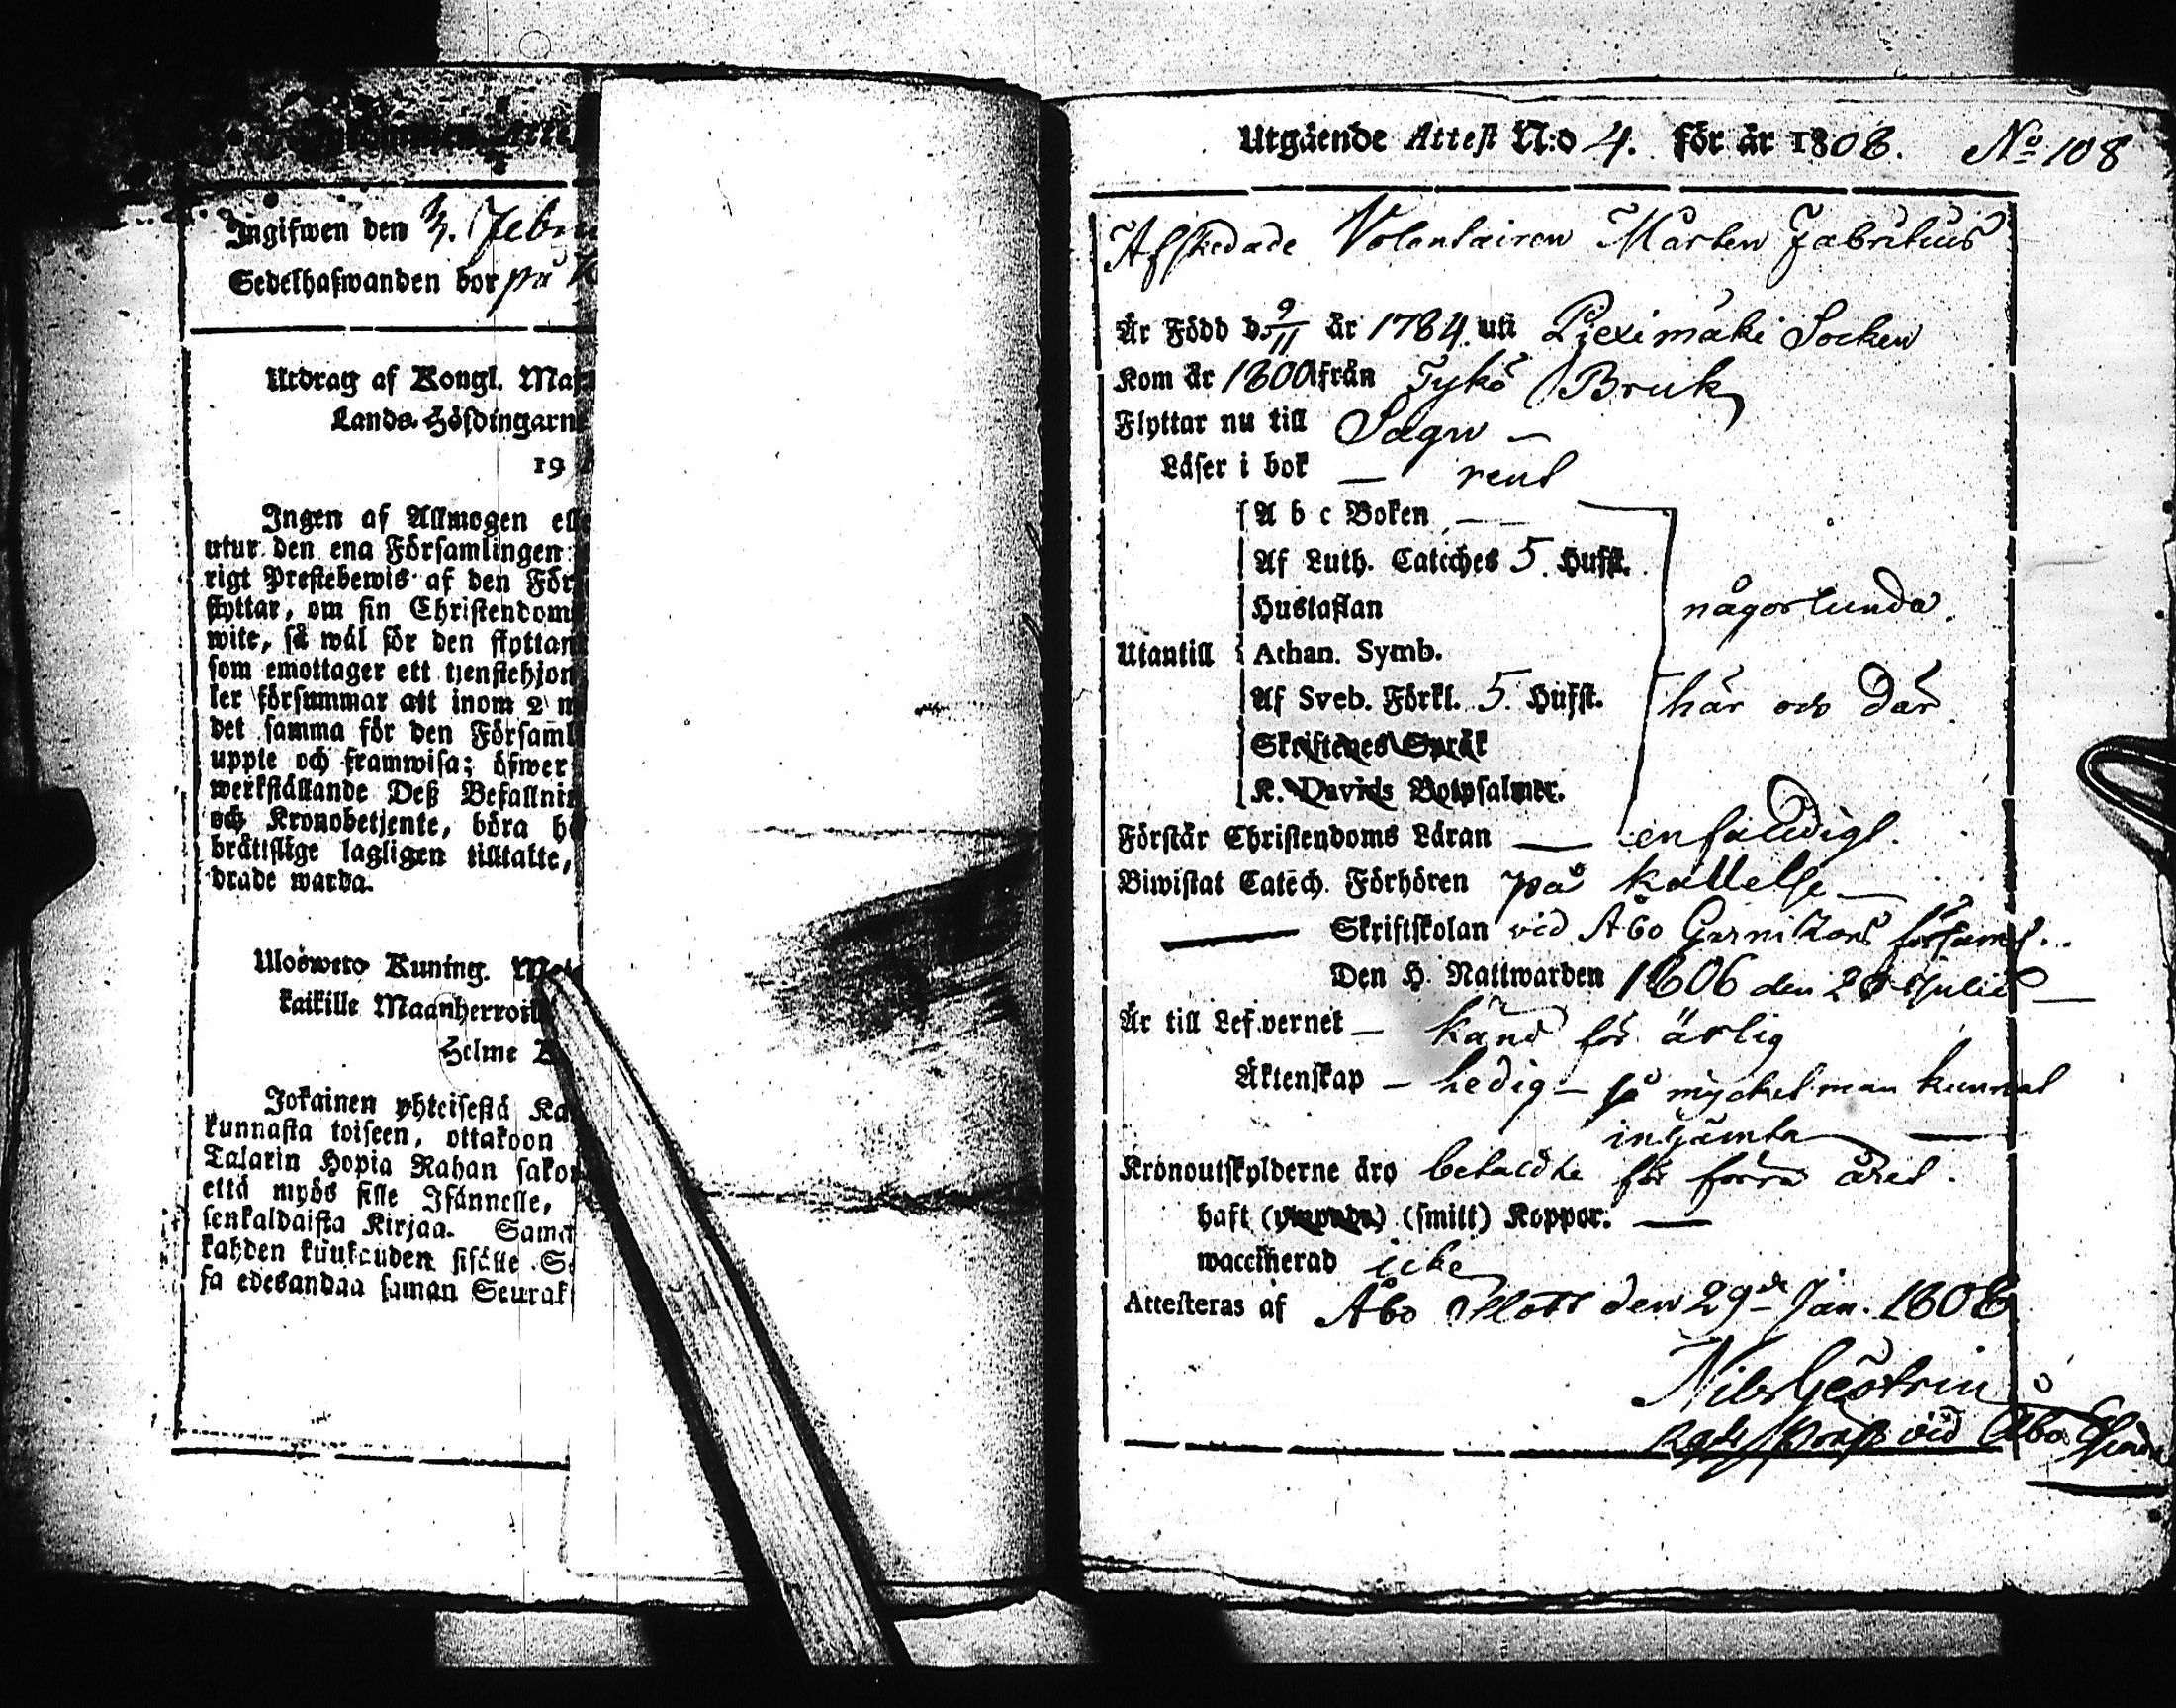 Ingifwen den 3. Febru
Sedelhafwanden bor på
Utdrag af Kongl. Maj
Lands-Höfdingarn
19
Ingen af Allmogen elle
utur den ena Församlingen
rigt Prestebewis af den För
flyttar, om sin Christendom
wite, så wäl för den flyttan
som emottager ett tjenstehjon
ler försummar att inom 2 m
det samma för den Församl
uppte och framwisa; öfwer
werkställande Deß Befallni
och Kronobetjente, böra h
bråttslige lagligen tilltalte,
drade warda.
Ulosweto Kuning.
kaikille Maanherroil
Helme
Jokainen yhteisestä Ka
kunnasta toiseen, ottakoon
Talarin Hopia Rahan sako
että myös sille Isännelle,
senkaldaista Kirjaa. Sama
kahden kuukauden sisälle S
sa edesandaa saman Seurak
Utgående Attest N:o 4. för år 1808. No 108
Afskedade Volontairen Mårten Fabritius
Är Född d. 9/11 år 1784. uti Pjeximäki Socken
Kom år 1800 ifrån Tykö Bruk
Flyttar nu till Sagu —
Läser i bok — rent
A b c Boken — —
Af Luth. Catéches 5. Hufst.
Hustaflan någorlunda.
Utantill Athan. Symb.
Af Sveb. Förkl. 5. Hufst. här och där
Skriftenes Språk
K. Davids Botpsalmer.
Förstår Christendoms Läran — enfaldigt.
Biwistat Catéch. Förhören på kallelse —
— Skriftskolan vid Åbo Garnizons församl.
Den H. Nattwarden 1806 den 20 Julii —
Är till Lefvernet — känd för ärlig
Äktenskap — ledig — så myckel man kunnat
inhämta —
Kronoutskylderne äro betaldte för förra året.
haft (smitt) Koppor. —
waccinerad icke
Attesteras af Åbo Slott den 29de Jan. 1808
Nils Geströrin
vid Åbo